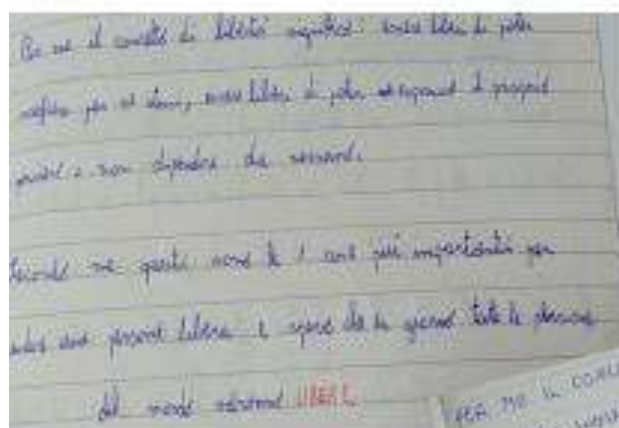 Per me il concetto di libertà significa: essere libera di poter
per se stessi, essere liberi di poter esprimere il proprio
e non dipendere da nessuno.
Secondo me queste sono le 3 cose più importanti per
essere una persona libera e spero che un giorno tutte le donne
del mondo saranno LIBERE
PER ME IL CONCE